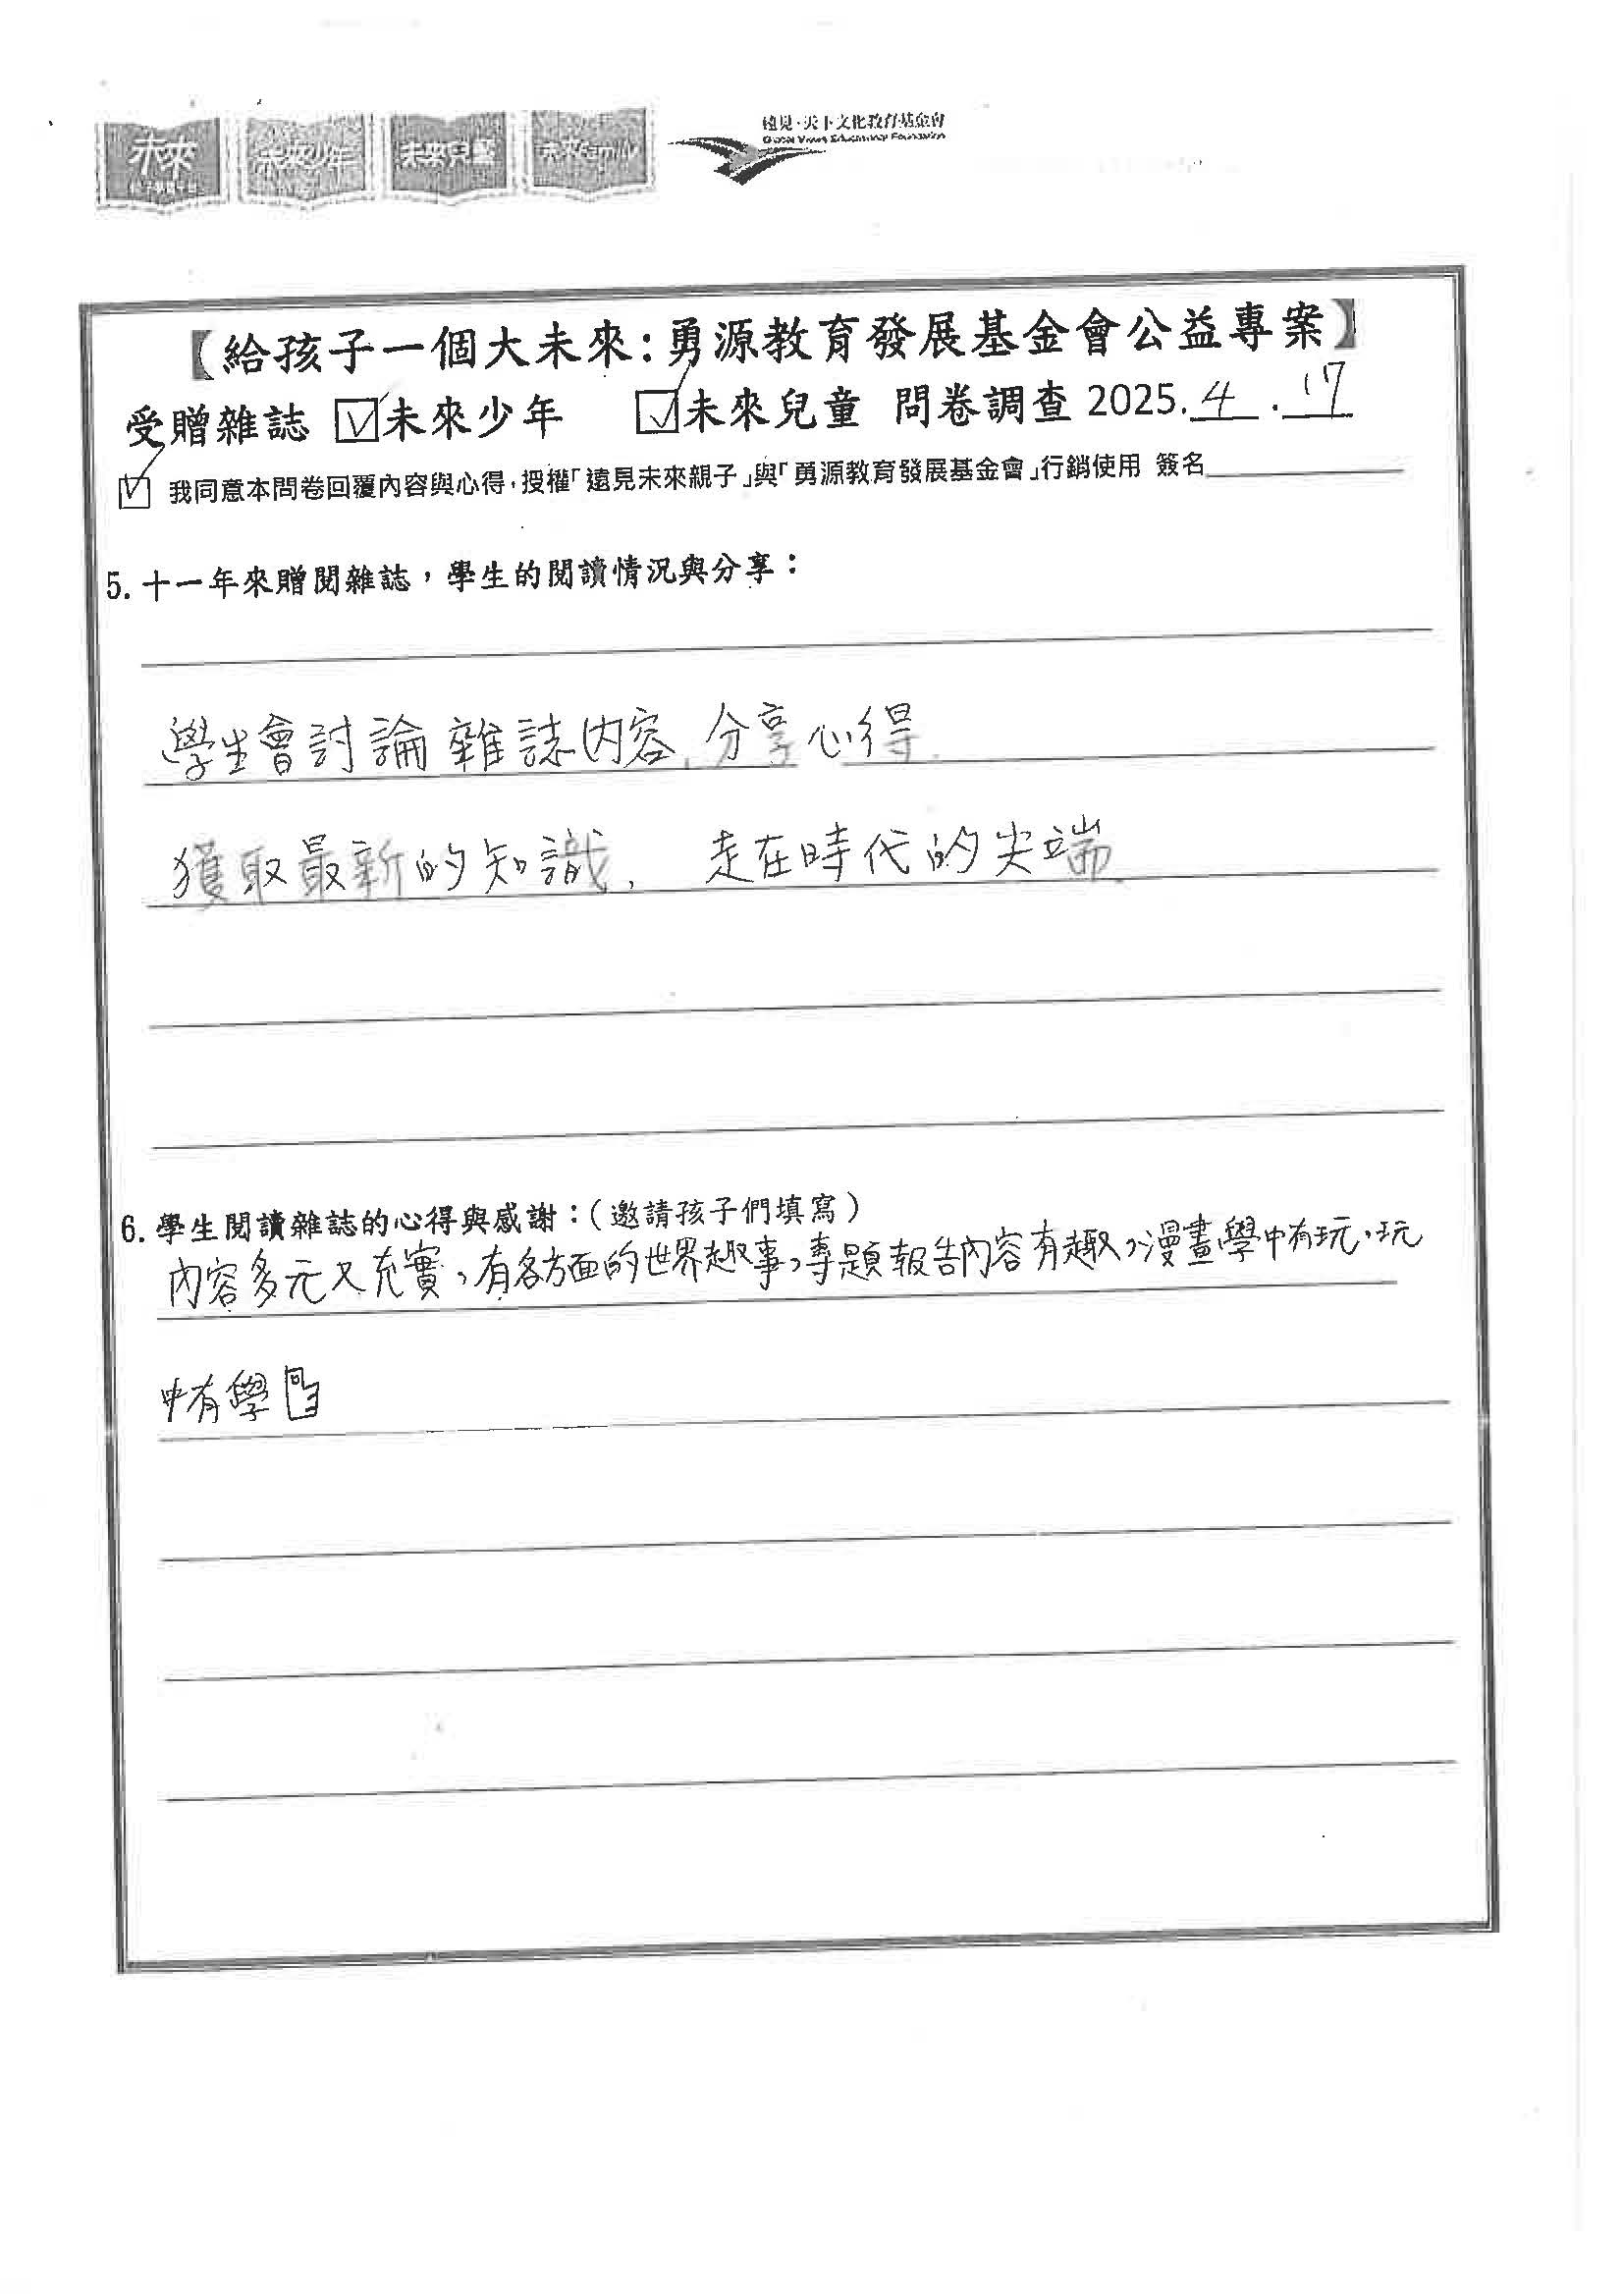 未來
親子學習平台
未來少年
未來兒童
未來Family
遠見‧天下文化教育基金會
Global Views Educational Foundation
【給孩子一個大未來:勇源教育發展基金會公益專案】
受贈雜誌 ☑未來少年 ☑未來兒童 問卷調查 2025.4.17
☑ 我同意本問卷回覆內容與心得,授權「遠見未來親子」與「勇源教育發展基金會」行銷使用 簽名
5. 十一年來贈閱雜誌,學生的閱讀情況與分享:
學生會討論雜誌內容、分享心得.
獲取最新的知識, 走在時代的尖端
6. 學生閱讀雜誌的心得與感謝:(邀請孩子們填寫)
內容多元又充實,有各方面的世界趣事,專題報告內容有趣,漫畫學中有玩,玩
中有學